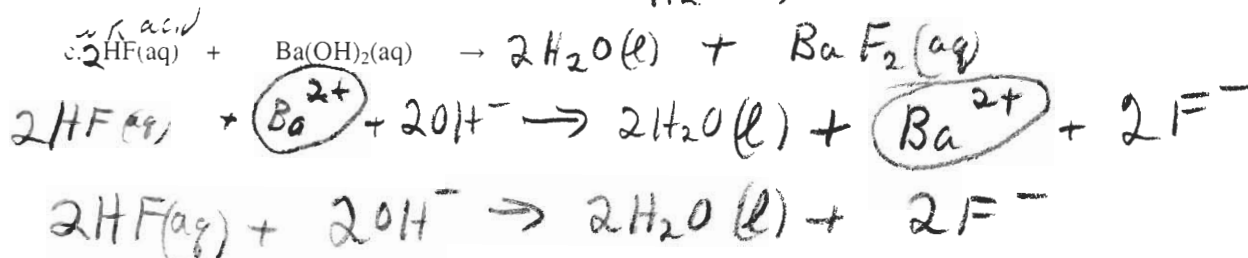 H₂
wk acid
c. 2HF(aq) + Ba(OH)₂(aq) → 2H₂O(l) + BaF₂(aq)
2HF(aq) + Ba²⁺ + 2OH⁻ → 2H₂O(l) + Ba²⁺ + 2F⁻
2HF(aq) + 2OH⁻ → 2H₂O(l) + 2F⁻